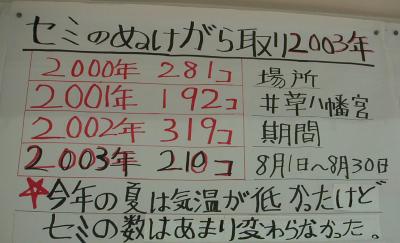 セミのぬけがら取り2003年
2000年 281コ
2001年 192コ
2002年 319コ
2003年 210コ
場所
井草八幡宮
期間
8月1日〜8月30日
☆今年の夏は気温が低かったけど
セミの数はあまり変わらなかった。